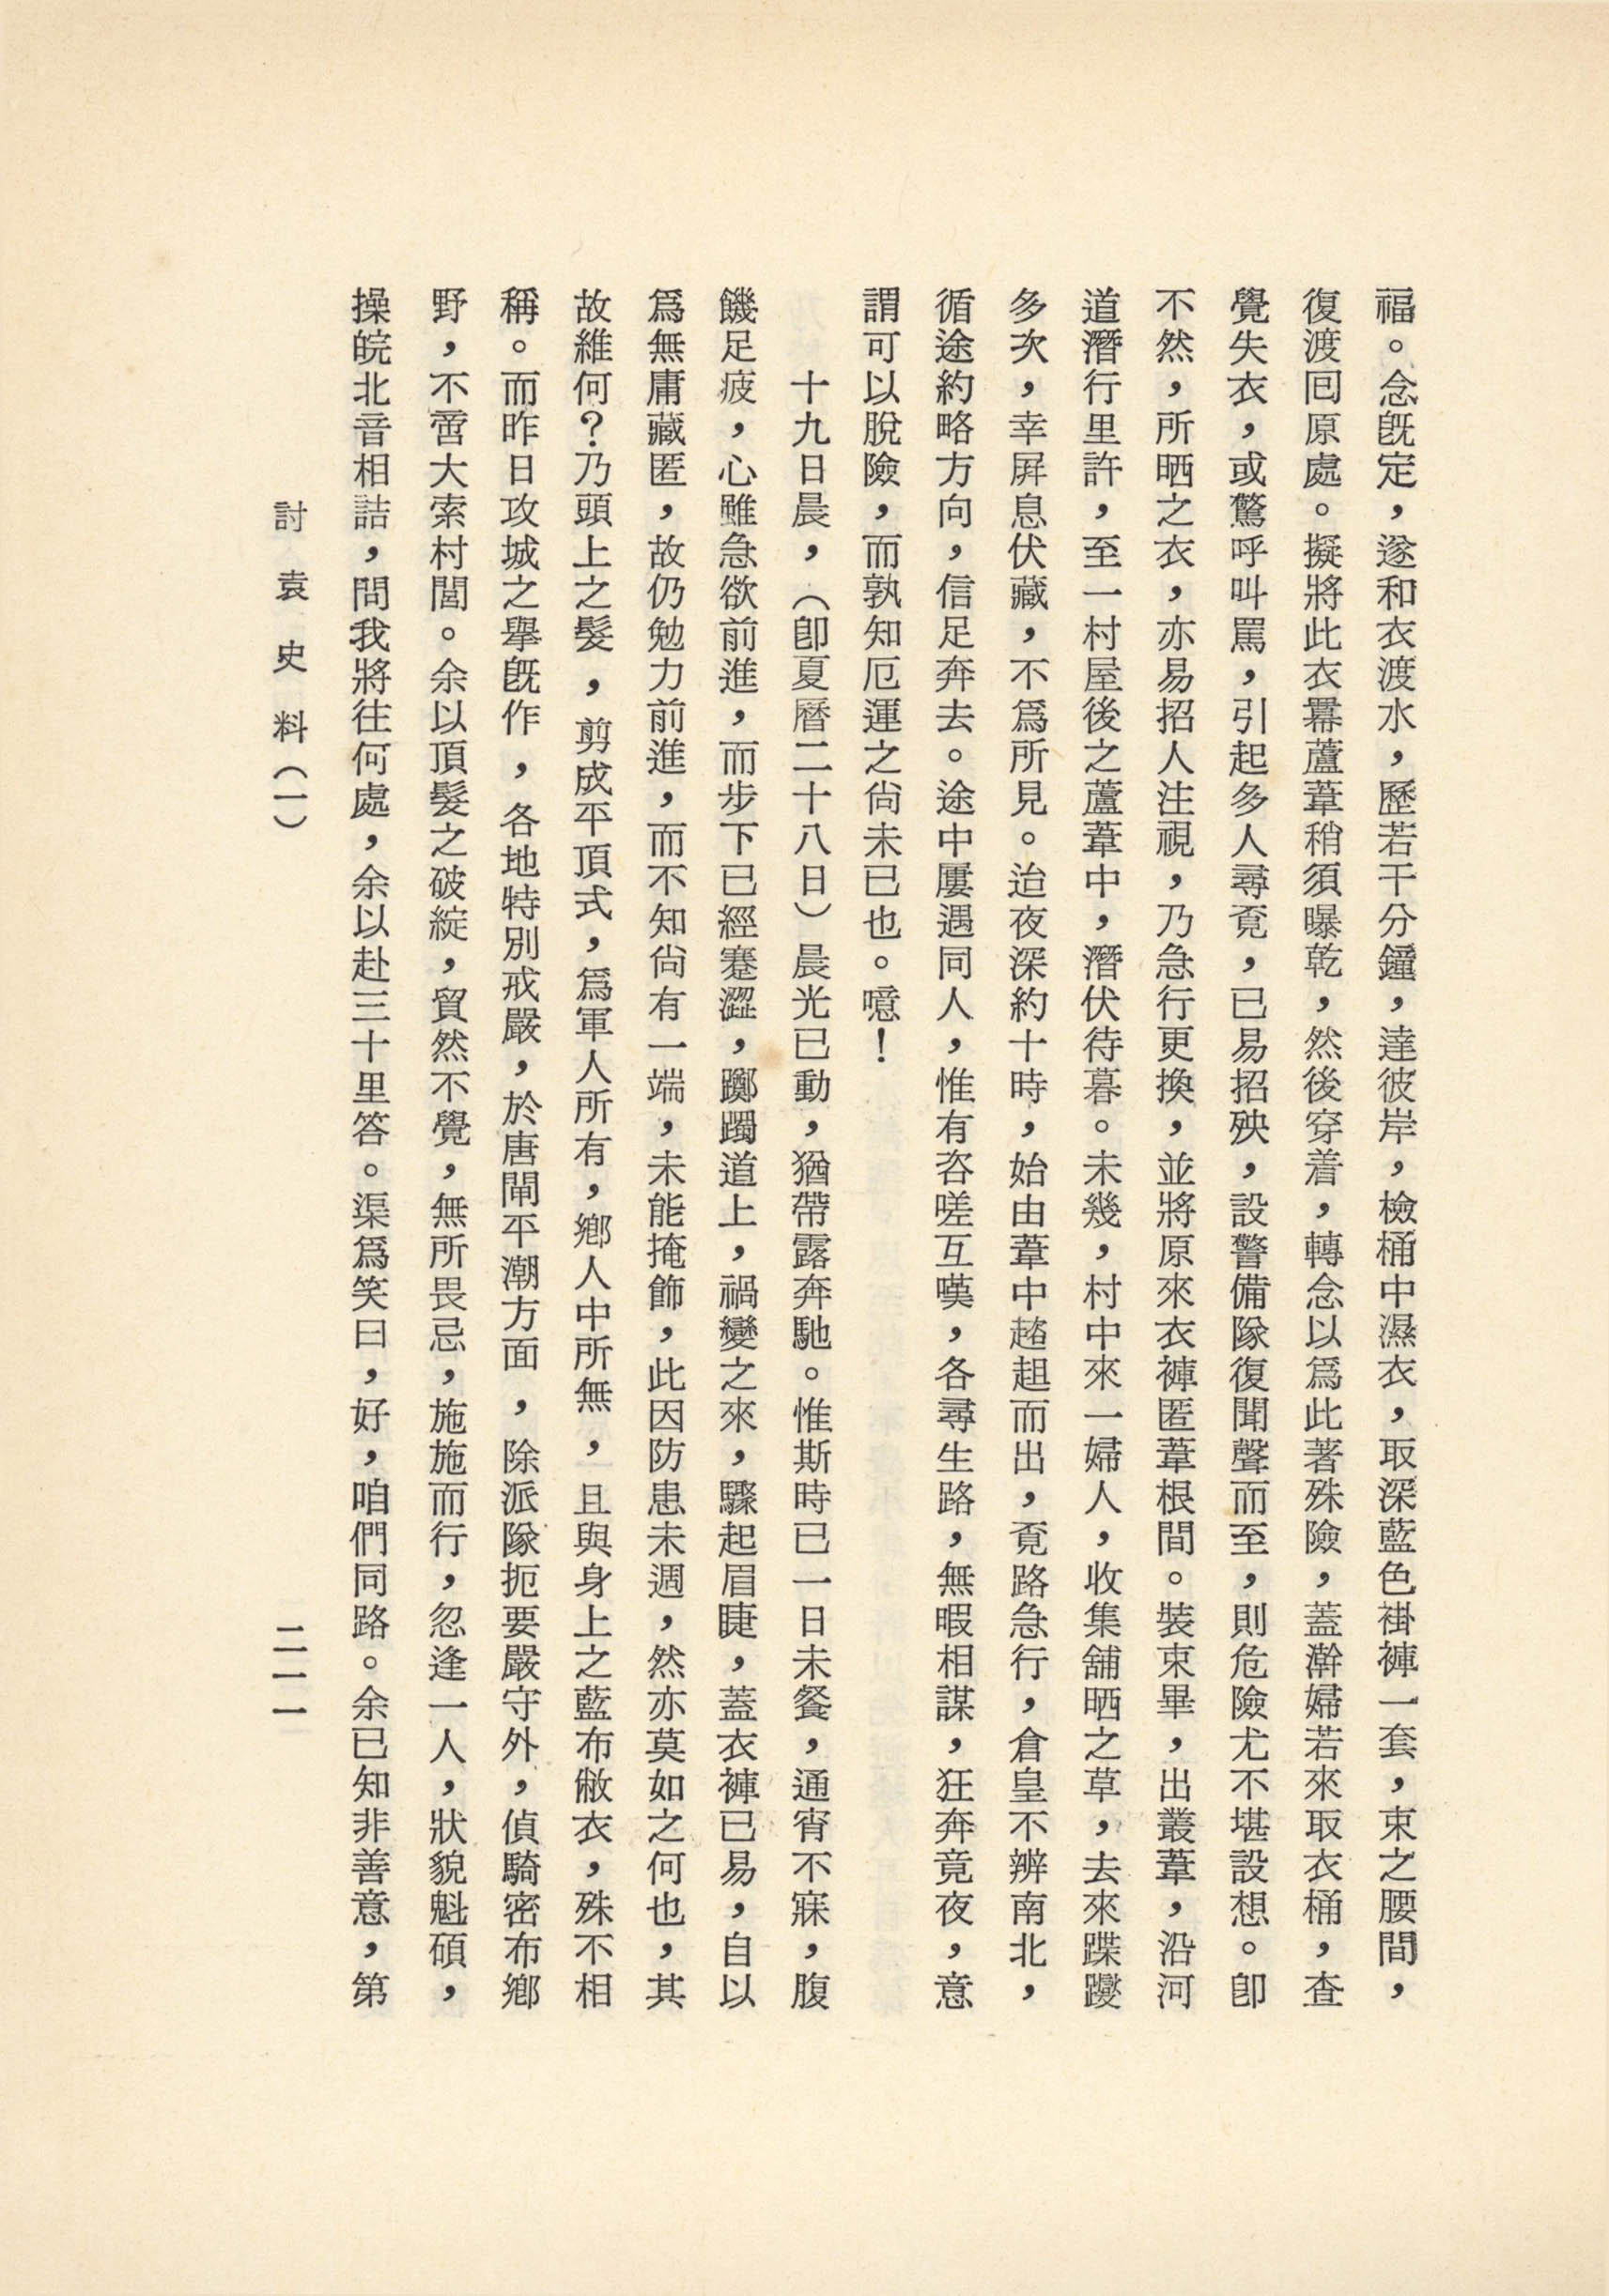 福。念旣定，遂和衣渡水，歷若干分鐘，達彼岸，檢桶中濕衣，取深藍色褂褲一套，束之腰間，
復渡囘原處。擬將此衣羃蘆葦稍須曝乾，然後穿着，轉念以爲此著殊險，蓋澣婦若來取衣桶，查
覺失衣，或驚呼叫罵，引起多人尋覓，已易招殃，設警備隊復聞聲而至，則危險尤不堪設想。卽
不然，所晒之衣，亦易招人注視，乃急行更換，並將原來衣褲匿葦根間。裝束畢，出叢葦，沿河
道潛行里許，至一村屋後之蘆葦中，潛伏待暮。未幾，村中來一婦人，收集舖晒之草，去來蹀躞
多次，幸屛息伏藏，不爲所見。迨夜深約十時，始由葦中趦趄而出，覓路急行，倉皇不辨南北，
循途約略方向，信足奔去。途中屢遇同人，惟有咨嗟互嘆，各尋生路，無暇相謀，狂奔竟夜，意
謂可以脫險，而孰知厄運之尙未已也。噫！
十九日晨，（卽夏曆二十八日）晨光已動，猶帶露奔馳。惟斯時已一日未餐，通宵不寐，腹
饑足疲，心雖急欲前進，而步下已經蹇澀，躑躅道上，禍變之來，驟起眉睫，蓋衣褲已易，自以
爲無庸藏匿，故仍勉力前進，而不知尙有一端，未能掩飾，此因防患未週，然亦莫如之何也，其
故維何？乃頭上之髮，剪成平頂式，爲軍人所有，鄕人中所無，且與身上之藍布敝衣，殊不相
稱。而昨日攻城之舉旣作，各地特別戒嚴，於唐閘平潮方面，除派隊扼要嚴守外，偵騎密布鄕
野，不啻大索村閭。余以頂髮之破綻，貿然不覺，無所畏忌，施施而行，忽逢一人，狀貌魁碩，
操皖北音相詰，問我將往何處，余以赴三十里答。渠爲笑曰，好，咱們同路。余已知非善意，第
討袁史料（一）
二一一